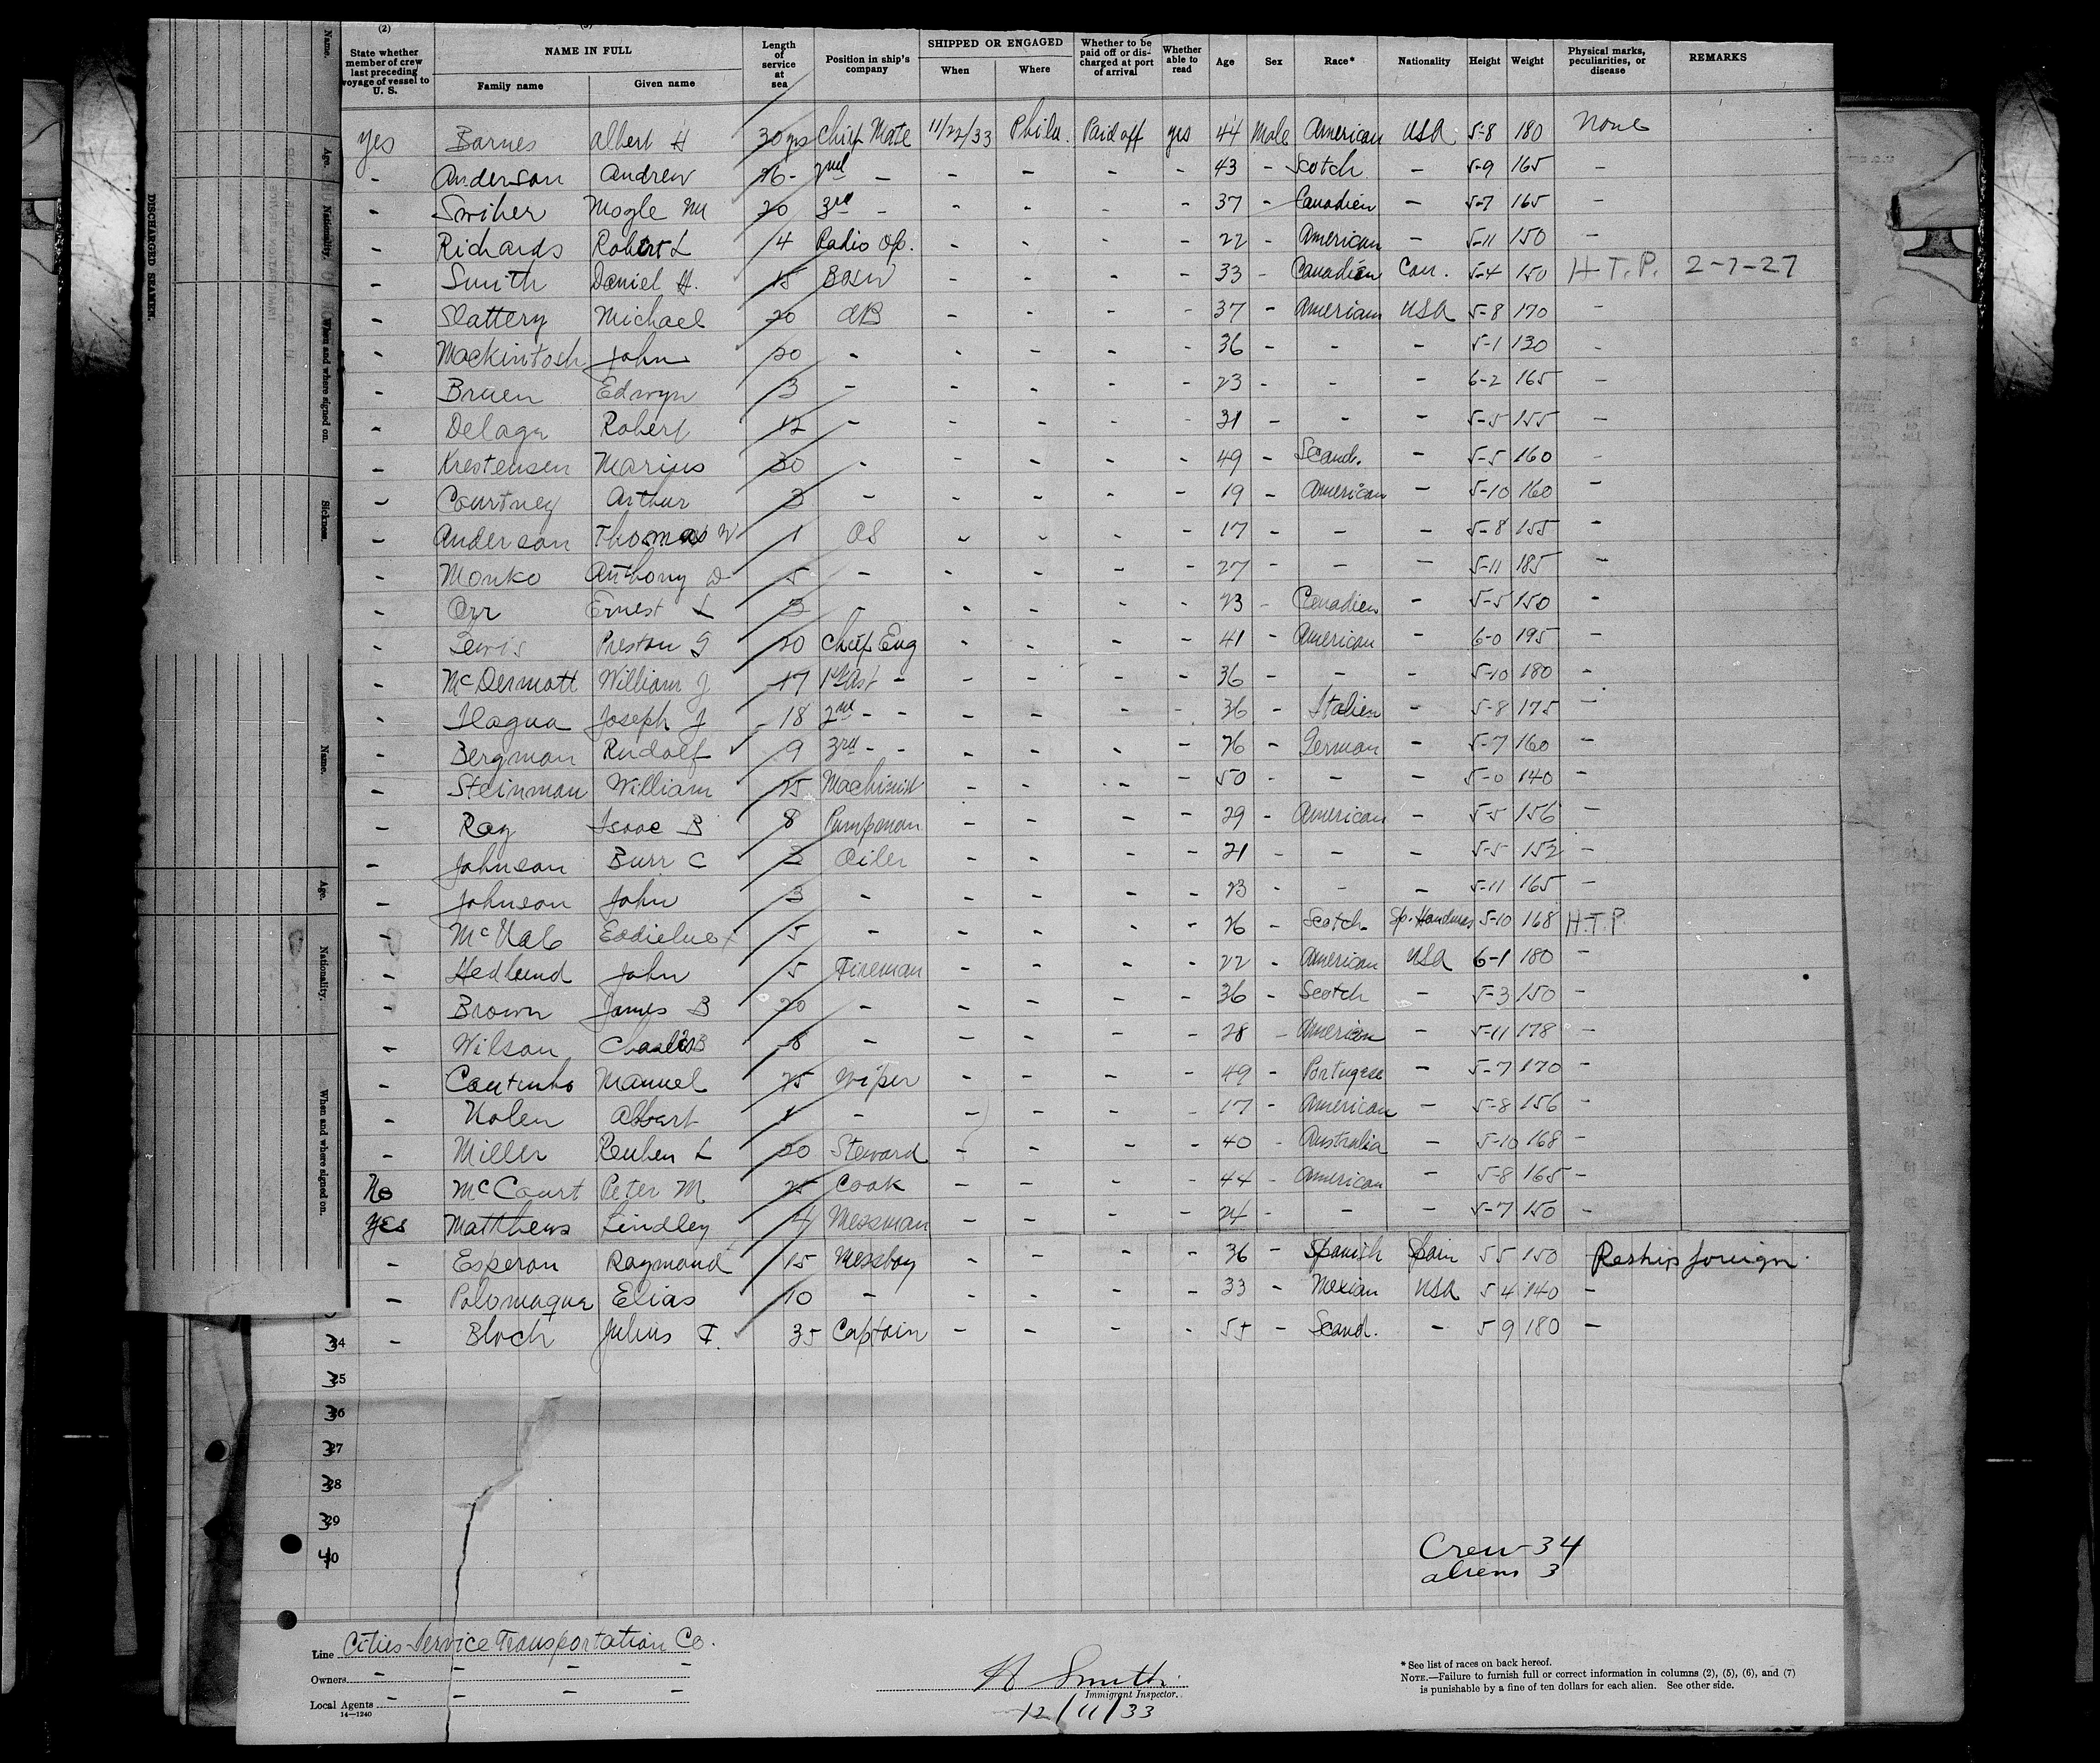 (2) State whether member of crew last preceding voyage of vessel to U. S. | NAME IN FULL Family name | Given name | Length of service at sea | Position in ship's company | SHIPPED OR ENGAGED When | Where | Whether to be paid off or discharged at port of arrival | Whether able to read | Age | Sex | Race* | Nationality | Height | Weight | Physical marks, peculiarities, or disease | REMARKS
yes Barnes Albert H 30 yrs Chief Mate 11/22/33 Phila. Paid off yes 44 Male American USA 5-8 180 None
- Anderson Andrew 16 - 2nd - - - - - 43 - Scotch - 5-9 165 -
- Swiher Mogle M 20 3rd - - - - - 37 - Canadien - 5-7 165 -
- Richards Robert L 4 Radio Op. - - - - 22 - American - 5-11 150 -
- Smith Daniel H. 15 Bosn - - - - 33 - Canadien Can. 5-4 150 H.T.P. 2-7-27
- Slattery Michael 20 AB - - - - 37 - American USA 5-8 170 -
- Mackintosh John 20 - - - - - 36 - - - 5-1 130 -
- Bruen Edwyn 3 - - - - - 23 - - - 6-2 165 -
- Delaga Robert 12 - - - - - 31 - - - 5-5 155 -
- Krestensen Marius 30 - - - - - 49 - Scand. - 5-5 160 -
- Courtney Arthur 3 - - - - - 19 - American - 5-10 160 -
- Anderson Thomas W 1 OS - - - - 17 - - - 5-8 155 -
- Monko Anthony D 5 - - - - - 27 - - - 5-11 185 -
- Orr Ernest L 3 - - - - - 23 - Canadien - 5-5 150 -
- Lewis Preston G 20 Chief Eng - - - - 41 - American - 6-0 195 -
- McDermott William J 17 1st Ast - - - - - 36 - - - 5-10 180 -
- Ilagua Joseph J 18 2nd - - - - - - 36 - Italien - 5-8 175 -
- Bergman Rudolf 9 3rd - - - - - - 26 - German - 5-7 160 -
- Steinman William 25 Machinist - - - - 50 - - - 5-0 140 -
- Ray Isaac B 8 Pumpman - - - - 29 - American - 5-5 156 -
- Johnson Burr C 3 Oiler - - - - 21 - - - 5-5 152 -
- Johnson John 3 - - - - - 23 - - - 5-11 165 -
- McNab 5 - - - - - 26 - Scotch Sp. Honduras 5-10 168 H.T.P.
- Hedlund John 5 Fireman - - - - 22 - American USA 6-1 180 -
- Brown James B 20 - - - - - 36 - Scotch - 5-3 150 -
- Wilson Charles B 8 - - - - 28 - American - 5-11 178 -
- Coutinho Manuel 25 Wiper - - - - 49 - Portugese - 5-7 170 -
- Nolen Albert 1 - - - - - 17 - American - 5-8 156 -
- Miller Reuben L 20 Steward - - - - 40 - Australia - 5-10 168 -
No McCourt Peter M 25 Cook - - - - 44 - American - 5-8 165 -
yes Matthews Lindley 4 Messman - - - - 24 - - - 5-7 150 -
- Esperon Raymond 15 Messboy - - - - 36 - Spanish Spain 5 5 150 Reship foreign.
- Polomaque Elias 10 - - - - - 33 - Mexian USA 5 4 140 -
34 - Bloch Julius F. 35 Captain - - - - 55 - Scand. - 5 9 180 -
35
36
37
38
39
40
Crew - 34
aliens 3
Line Cities Service Transportation Co.
Owners - - - -
Local Agents - - - -
14—1240
H Smith
Immigrant Inspector.
12/11/33
* See list of races on back hereof.
NOTE.—Failure to furnish full or correct information in columns (2), (5), (6), and (7)
is punishable by a fine of ten dollars for each alien. See other side.
DISCHARGED SEAMEN.
Name. Age. Nationality. When and where signed on. Sickness.
Name. Age. Nationality. When and where signed on.